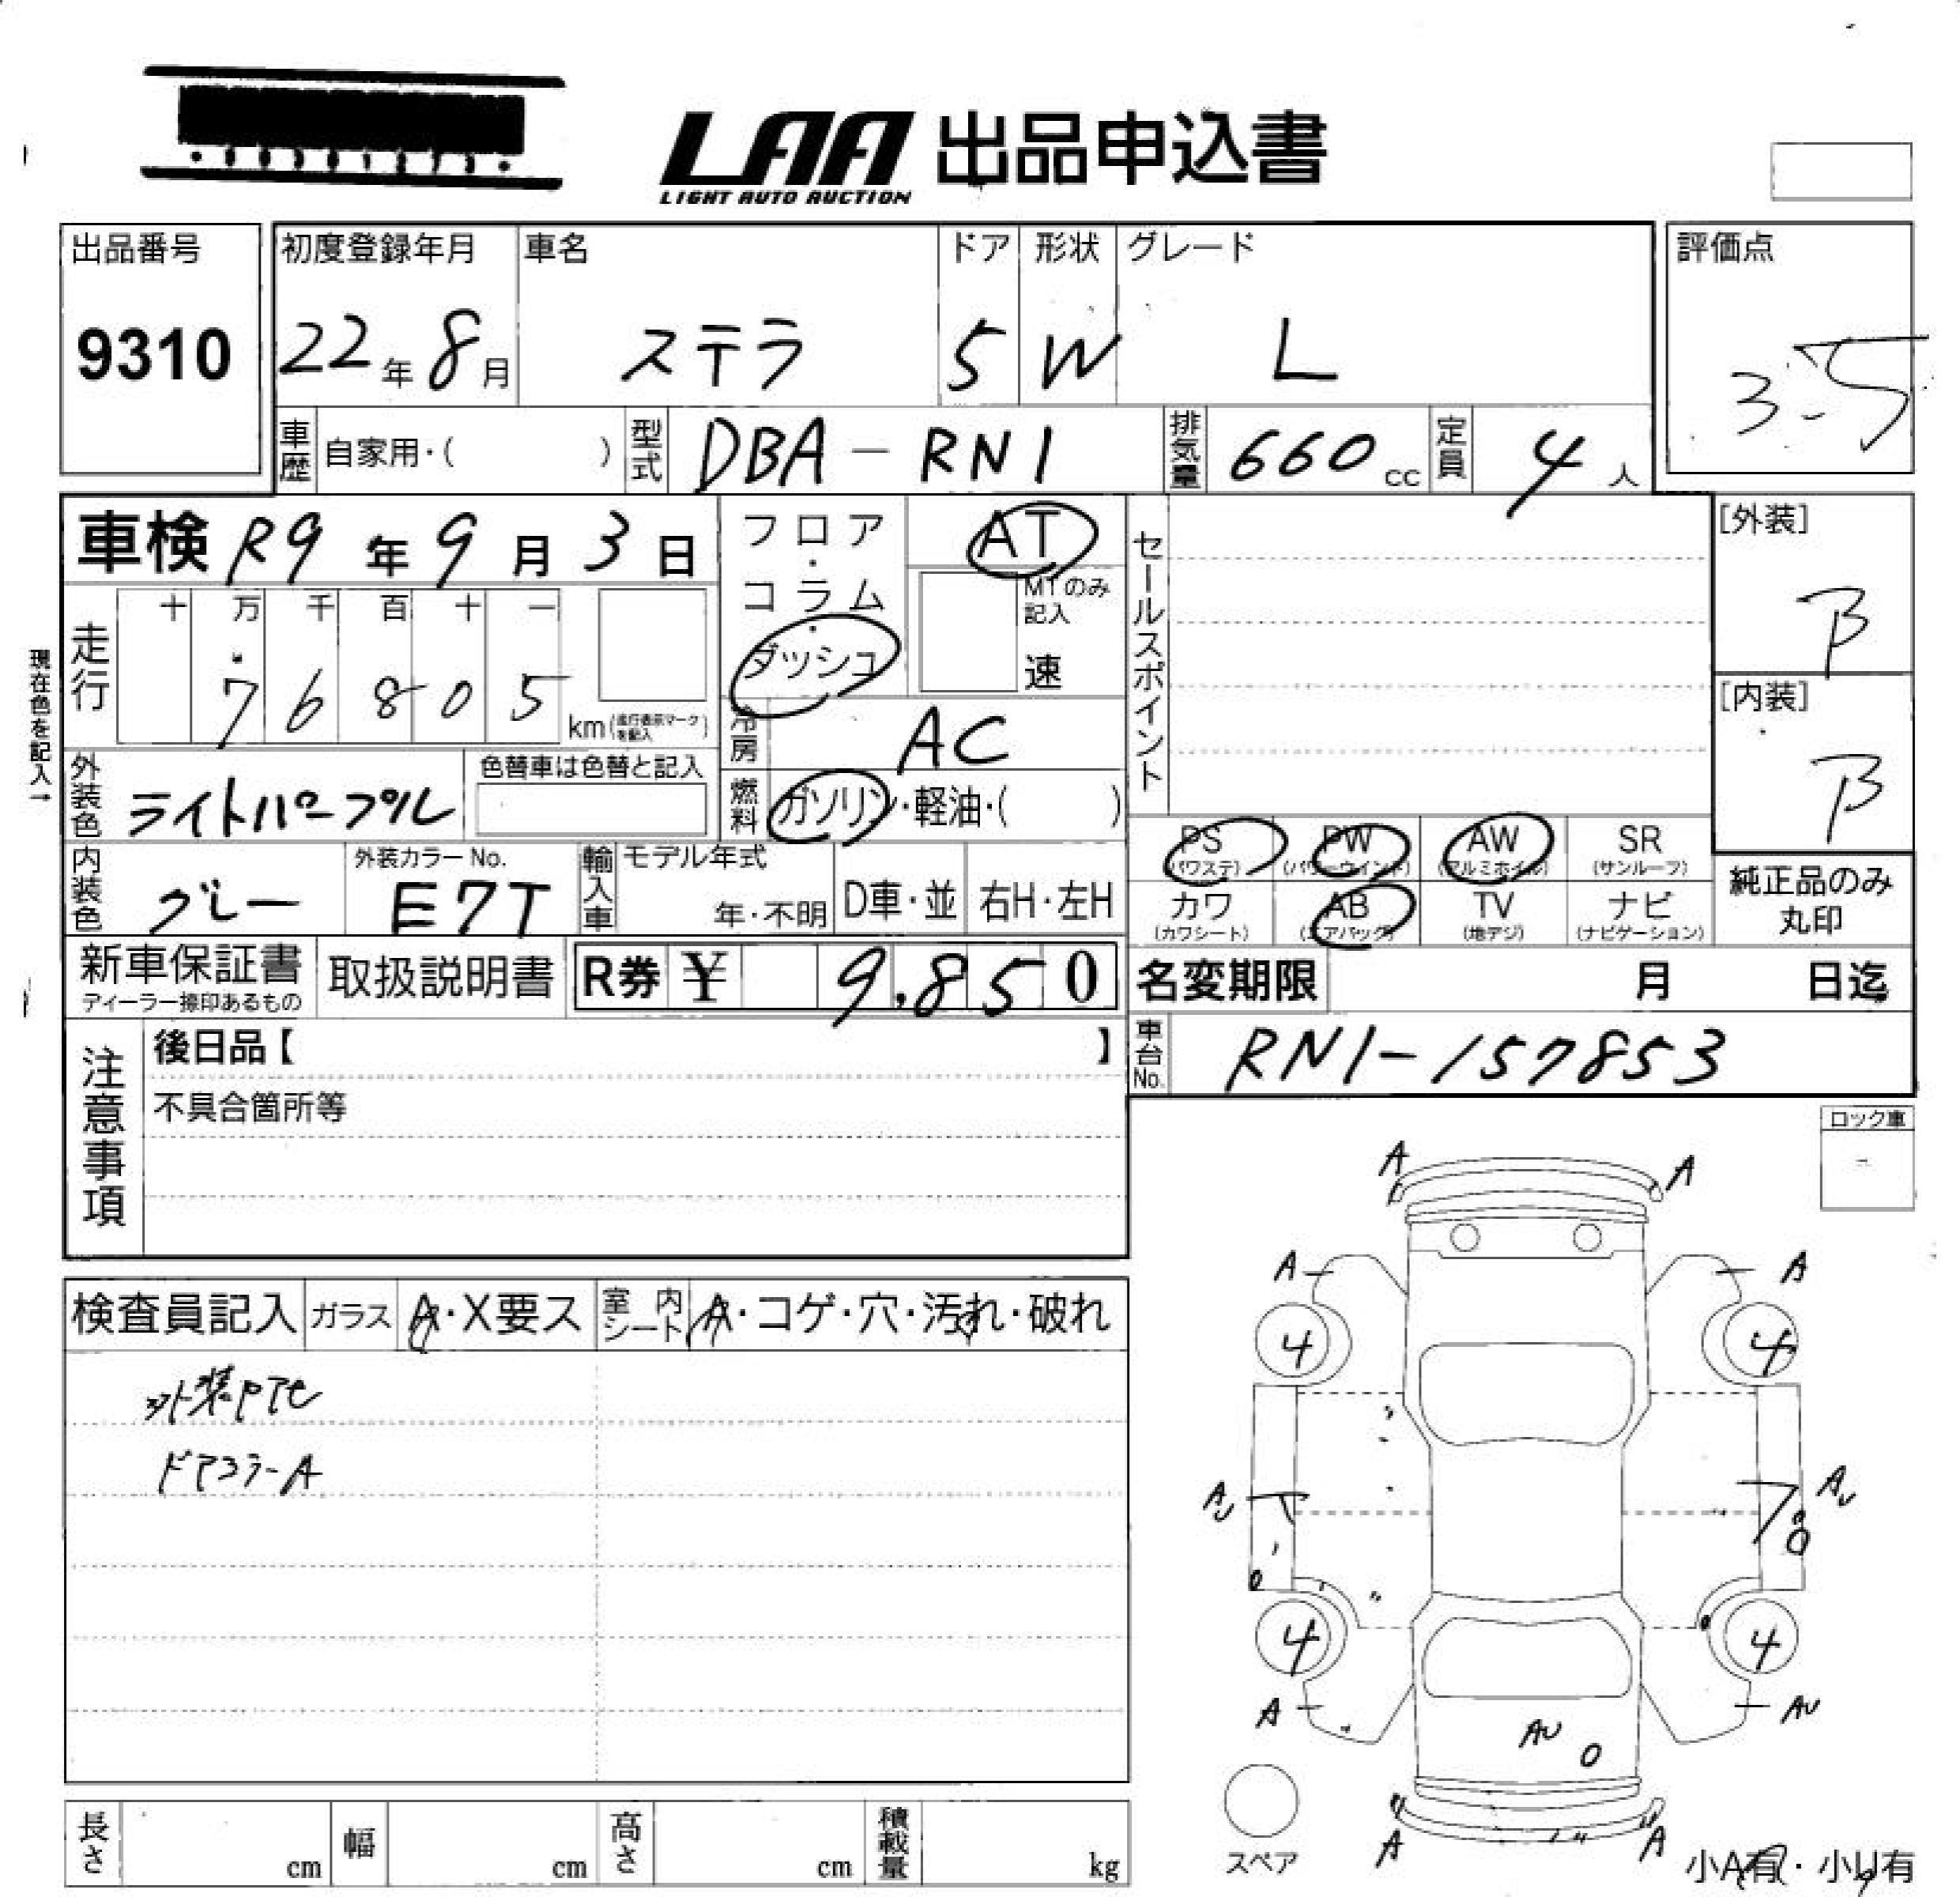 LAA 出品申込書
LIGHT AUTO AUCTION
出品番号
9310
初度登録年月
22年8月
車名
ステラ
ドア
5
形状
W
グレード
L
評価点
3.5
車歴 自家用・( )
型式 DBA-RN1
排気量 660cc
定員 4人
車検 R9年9月3日
フロア・コラム・ダッシュ
AT
MTのみ記入
速
セールスポイント
[外装]
B
[内装]
B
現在色を記入→
走行
十 万 千 百 十 一
7 6 8 0 5
km(走行表示マークを記入)
冷房 AC
外装色 ライトパープル
色替車は色替と記入
燃料 ガソリン・軽油・( )
PS (パワステ)
PW (パワーウインド)
AW (アルミホイル)
SR (サンルーフ)
カワ (カワシート)
AB (エアバッグ)
TV (地デジ)
ナビ (ナビゲーション)
純正品のみ
丸印
内装色 グレー
外装カラーNo.
E7T
輸入車
モデル年式
年・不明
D車・並
右H・左H
新車保証書
ディーラー捺印あるもの
取扱説明書
R券 ¥ 9,850
名変期限 月 日迄
車台No. RN1-157853
注意事項
後日品【 】
不具合箇所等
ロック車
検査員記入
ガラス A・X要ス
室内シート A・コゲ・穴・汚れ・破れ
ドアコラーA
A A
A A
4 4
AU AU
4 4
A AU
AU
A A
スペア
小A有・小U有
長さ cm
幅 cm
高さ cm
積載量 kg